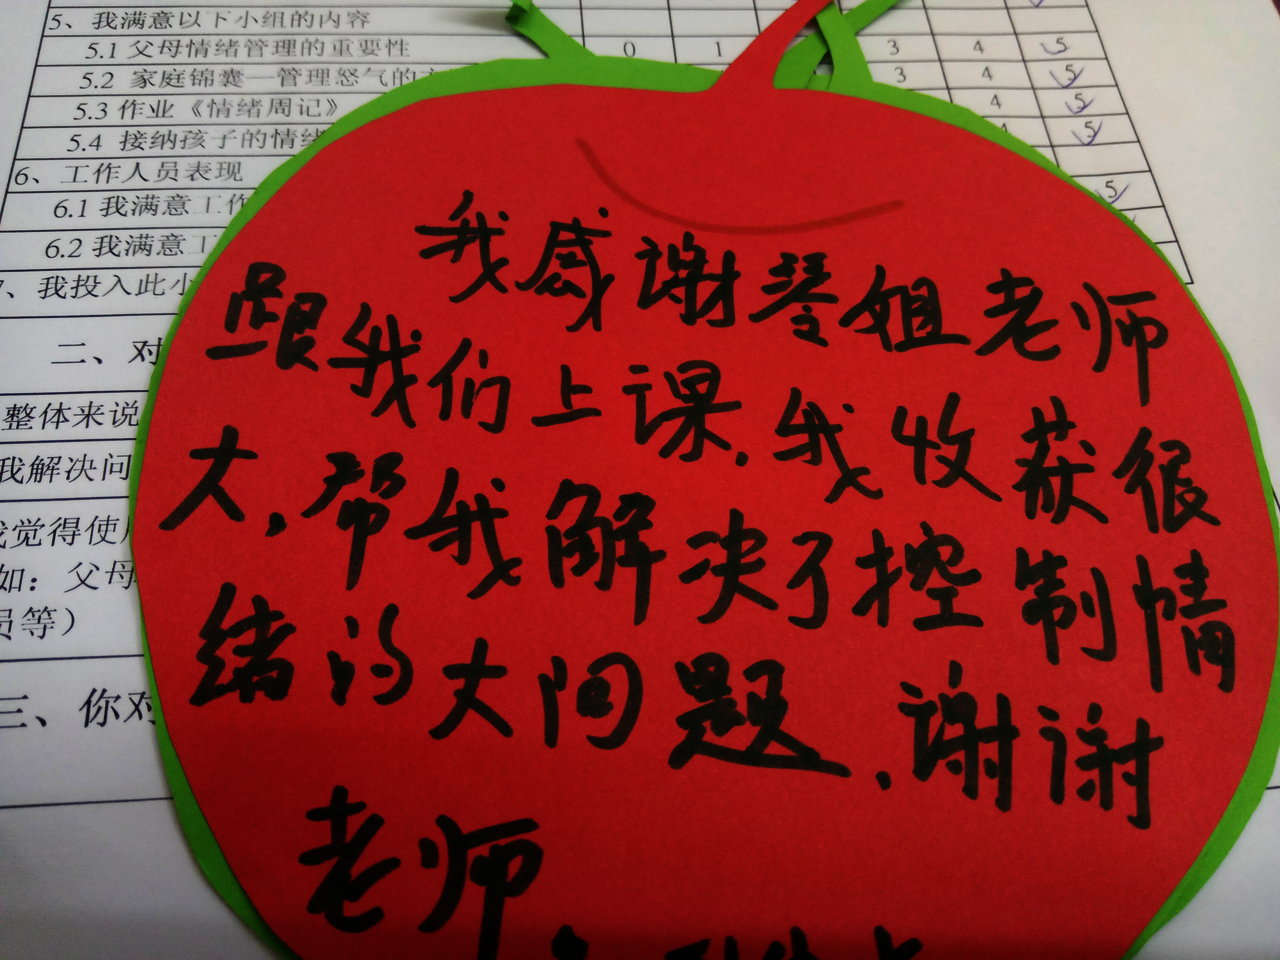 5、我满意以下小组的内容
5.1 父母情绪管理的重要性 0 1 3 4 5
5.2 家庭锦囊—管理怒气的 3 4 5
5.3 作业《情绪周记》 4 5
5.4 接纳孩子的情绪 4 5
6、工作人员表现
6.1 我满意工作 5
6.2 我满意工
7、我投入此小
二、对
整体来说
我解决问
我觉得使用
如：父母
员等）
三、你对
我感谢琴姐老师
跟我们上课,我收获很
大,帮我解决了控制情
绪的大问题,谢谢
老师